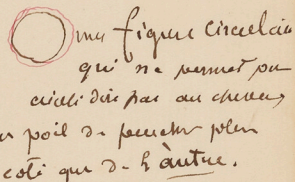 Une figure circulai
qui ne permet pa
ainsi dire pas au cheveu
n poil de pencher plus
coté que de l'autre.